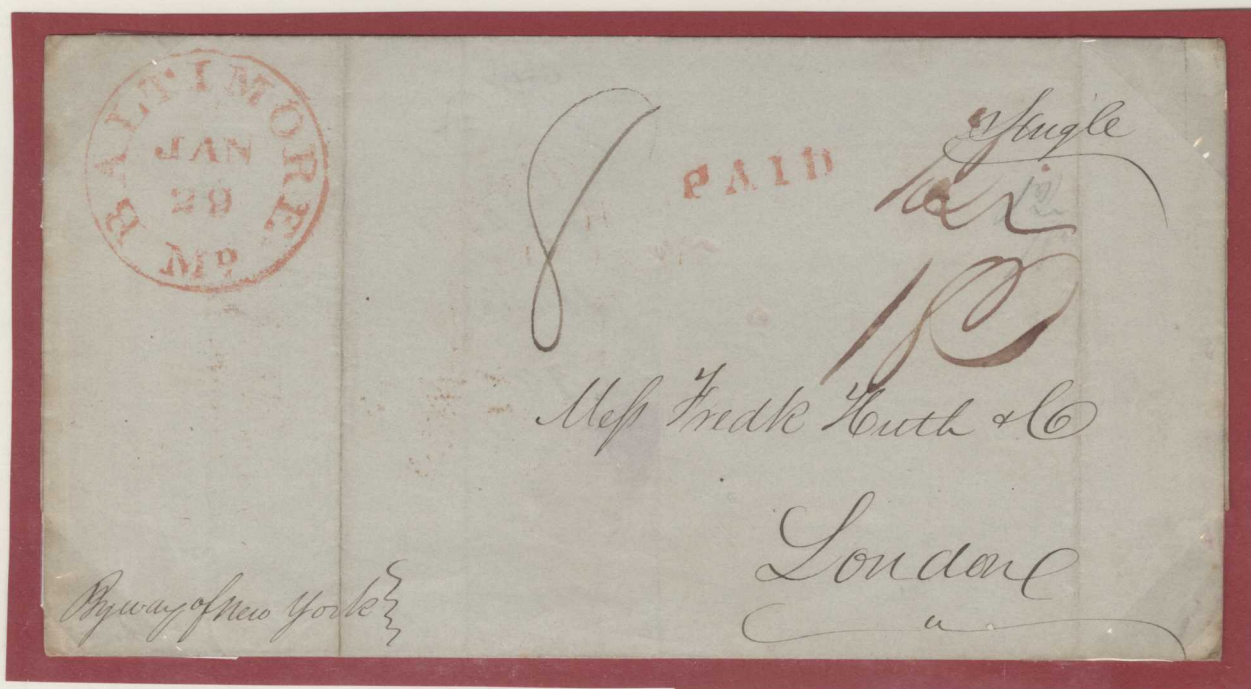 BALTIMORE
JAN
29
MD
PAID
Single
8
18
Mess Fredk Huth & Co
London
By way of New York